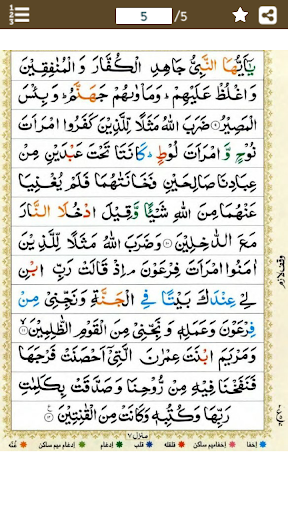 5 /5
يٰۤاَيُّهَا النَّبِيُّ جَاهِدِ الْكُفَّارَ وَ الْمُنٰفِقِيْنَ
وَ اغْلُظْ عَلَيْهِمْ ؕ وَ مَاْوٰىهُمْ جَهَنَّمُ ؕ وَ بِئْسَ
الْمَصِيْرُ ۹ ضَرَبَ اللّٰهُ مَثَلًا لِّلَّذِيْنَ كَفَرُوا امْرَاَتَ
نُوْحٍ وَّ امْرَاَتَ لُوْطٍ ؕ كَانَتَا تَحْتَ عَبْدَيْنِ مِنْ
عِبَادِنَا صَالِحَيْنِ فَخَانَتٰهُمَا فَلَمْ يُغْنِيَا
عَنْهُمَا مِنَ اللّٰهِ شَيْـًٔا وَّ قِيْلَ ادْخُلَا النَّارَ
مَعَ الدّٰخِلِيْنَ ۱۰ وَ ضَرَبَ اللّٰهُ مَثَلًا لِّلَّذِيْنَ
اٰمَنُوا امْرَاَتَ فِرْعَوْنَ ۘ اِذْ قَالَتْ رَبِّ ابْنِ
لِيْ عِنْدَكَ بَيْتًا فِي الْجَنَّةِ وَ نَجِّنِيْ مِنْ
فِرْعَوْنَ وَ عَمَلِهٖ وَ نَجِّنِيْ مِنَ الْقَوْمِ الظّٰلِمِيْنَ ۱۱
وَ مَرْيَمَ ابْنَتَ عِمْرٰنَ الَّتِيْۤ اَحْصَنَتْ فَرْجَهَا
فَنَفَخْنَا فِيْهِ مِنْ رُّوْحِنَا وَ صَدَّقَتْ بِكَلِمٰتِ
رَبِّهَا وَ كُتُبِهٖ وَ كَانَتْ مِنَ الْقٰنِتِيْنَ ۱۲
وقف لازم
منزل ۷
اخفا اخفا میم ساکن قلقله قلب ادغام ادغام میم ساکن غنّه